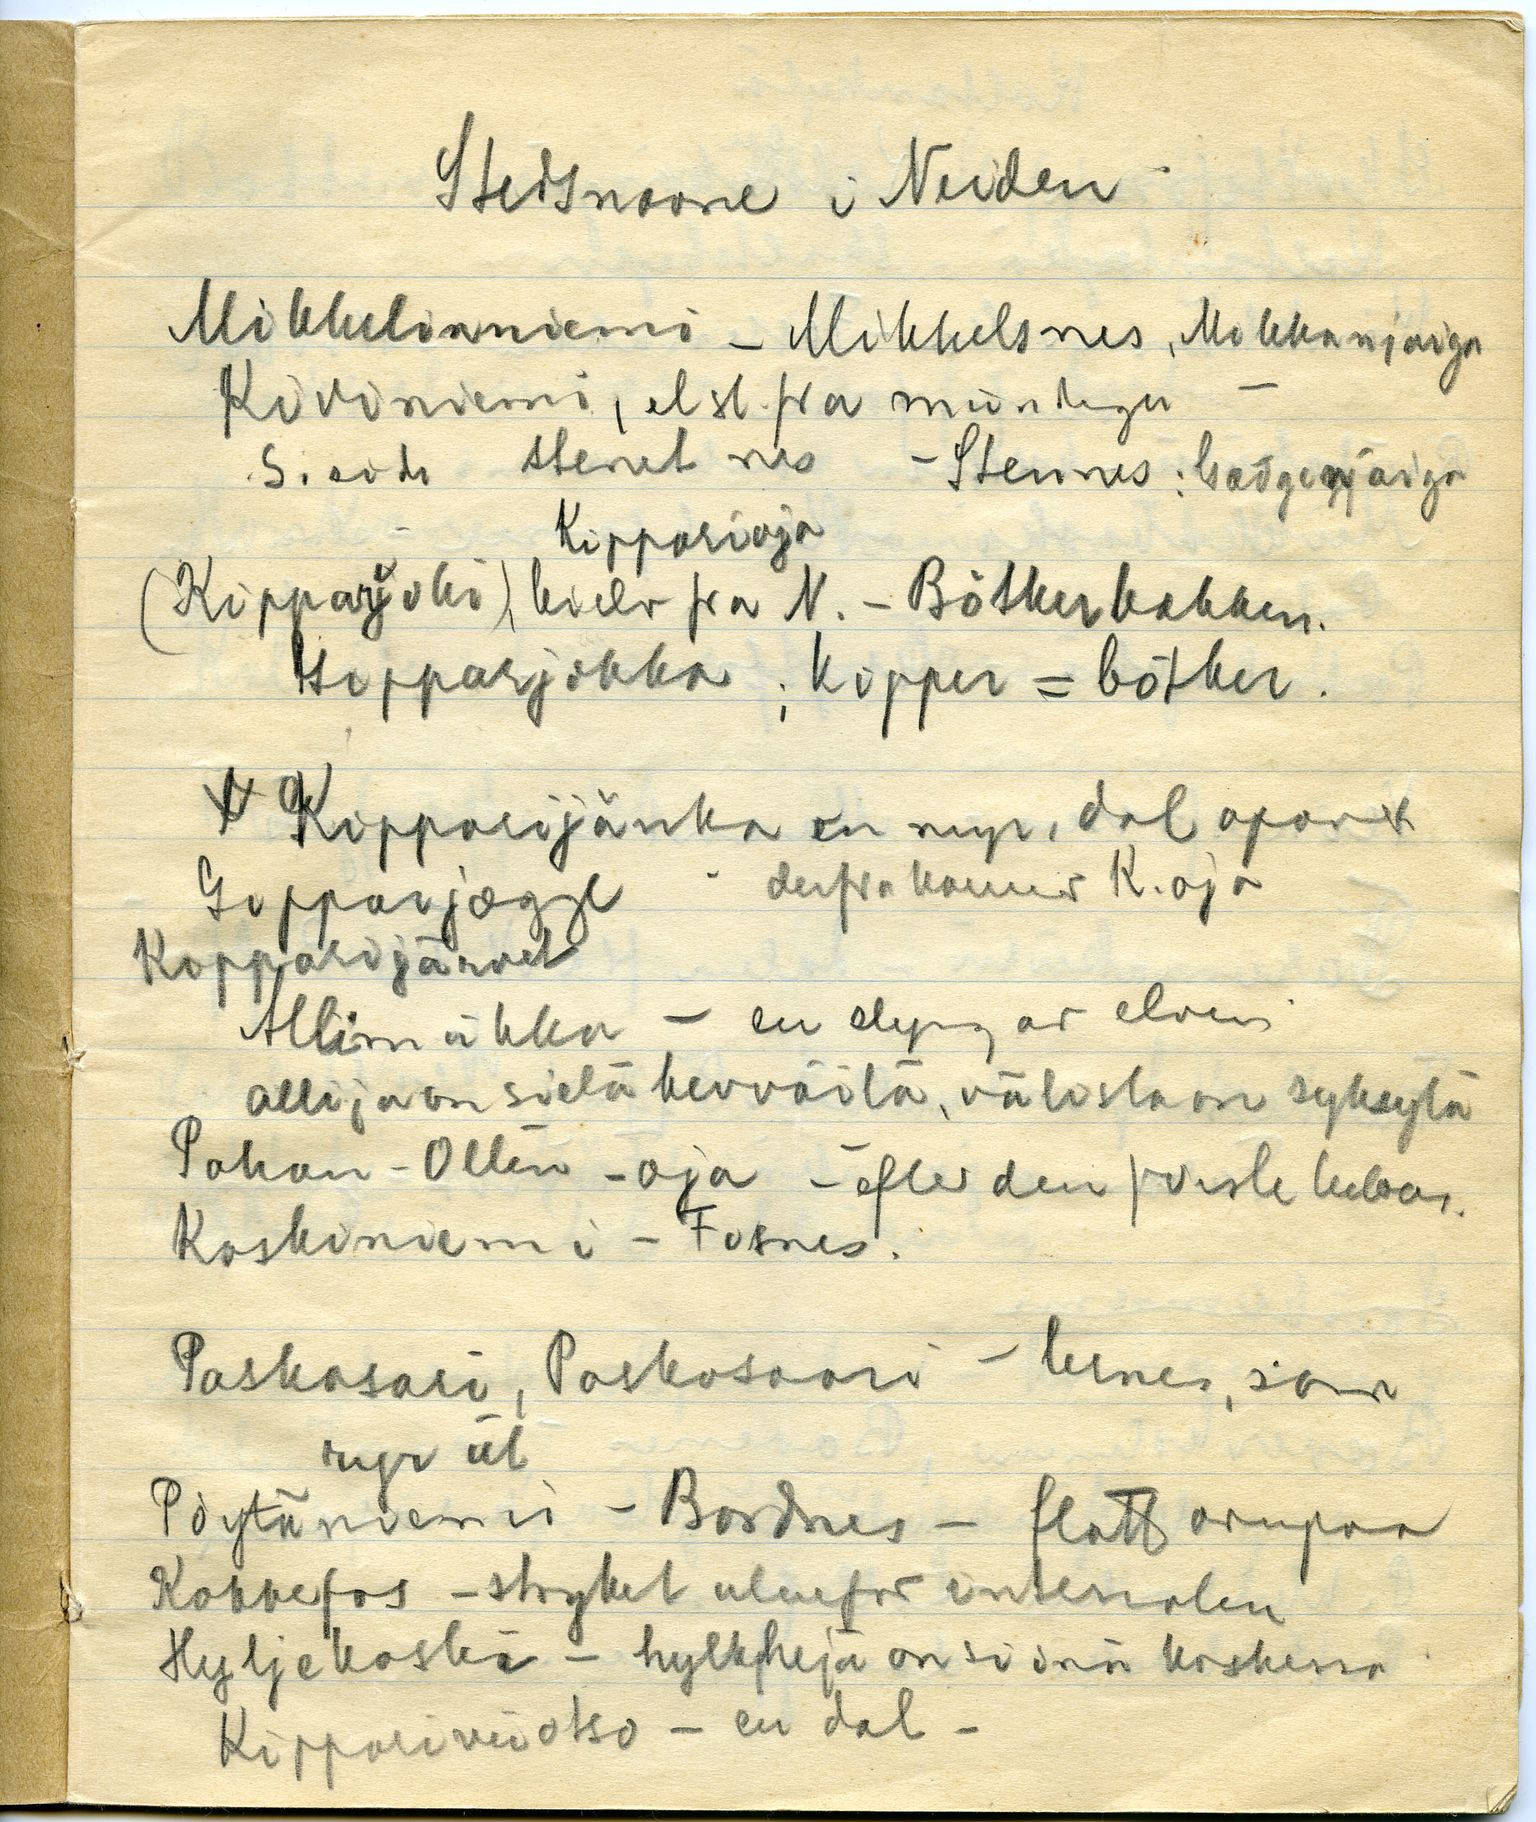 Stedsnavne i Neiden
Mikkelinniemi – Mikkelsnes, Mikkanjarga
Kiviniemi, elst. fra
stenet nes – Stennes; gædgenjarga
Kipparioja
(Kipparijoki), kielv fra N. – Bötkerbakken.
Gipparjokka ; kipper = bötker.
Kipparijänkä en myr, dal opover
Gipparjægge derfra kommer K. oja
Kipparijärvet
Allimukka – en slyng av elven
allija on sielä kevväilä, välistä on syksylä
Pahan-Ollin-oja – efter den første kelvar.
Koskiniemi – Fosnes.
Paskasari, Paskasaari – lernes, som
ryr ut
Pöytäniemi – Bordnes – flatt ovenpaa
Kobbefos – stryket utenfor internalen
Hyljekoski – hylkhejä on siinä koskessa
Kippariviiotso – en dal –